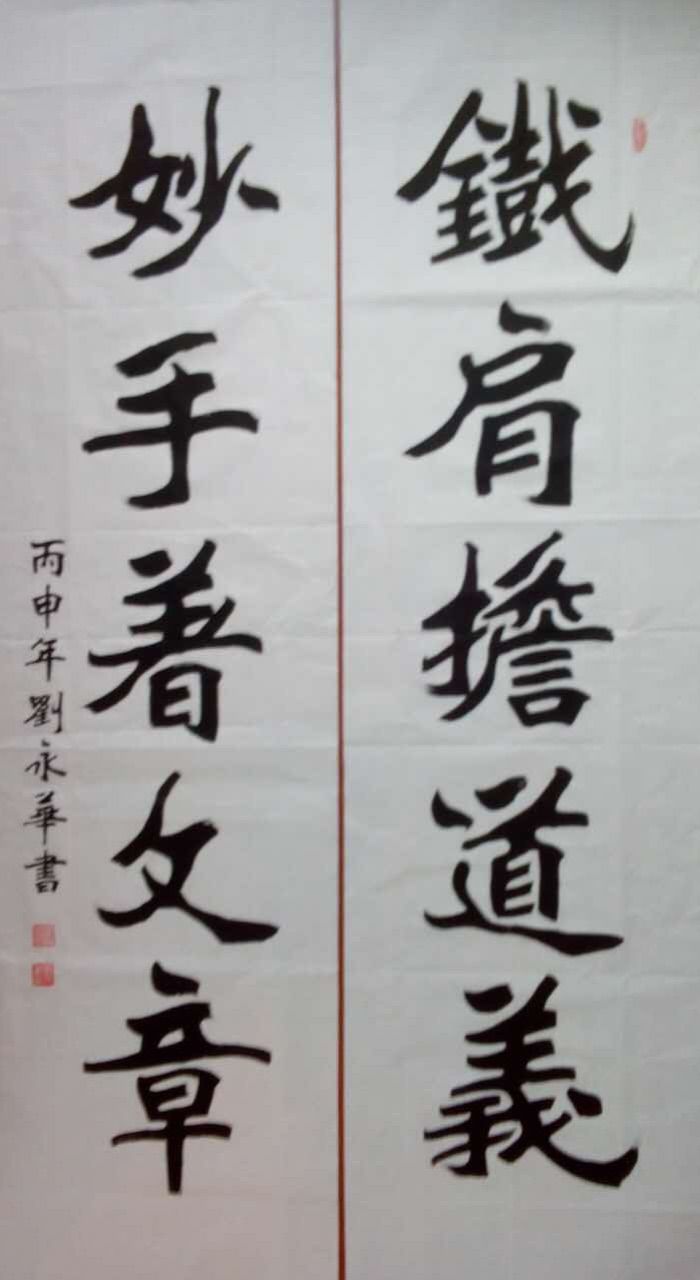 鐵肩擔道義
妙手著文章
丙申年劉永華書